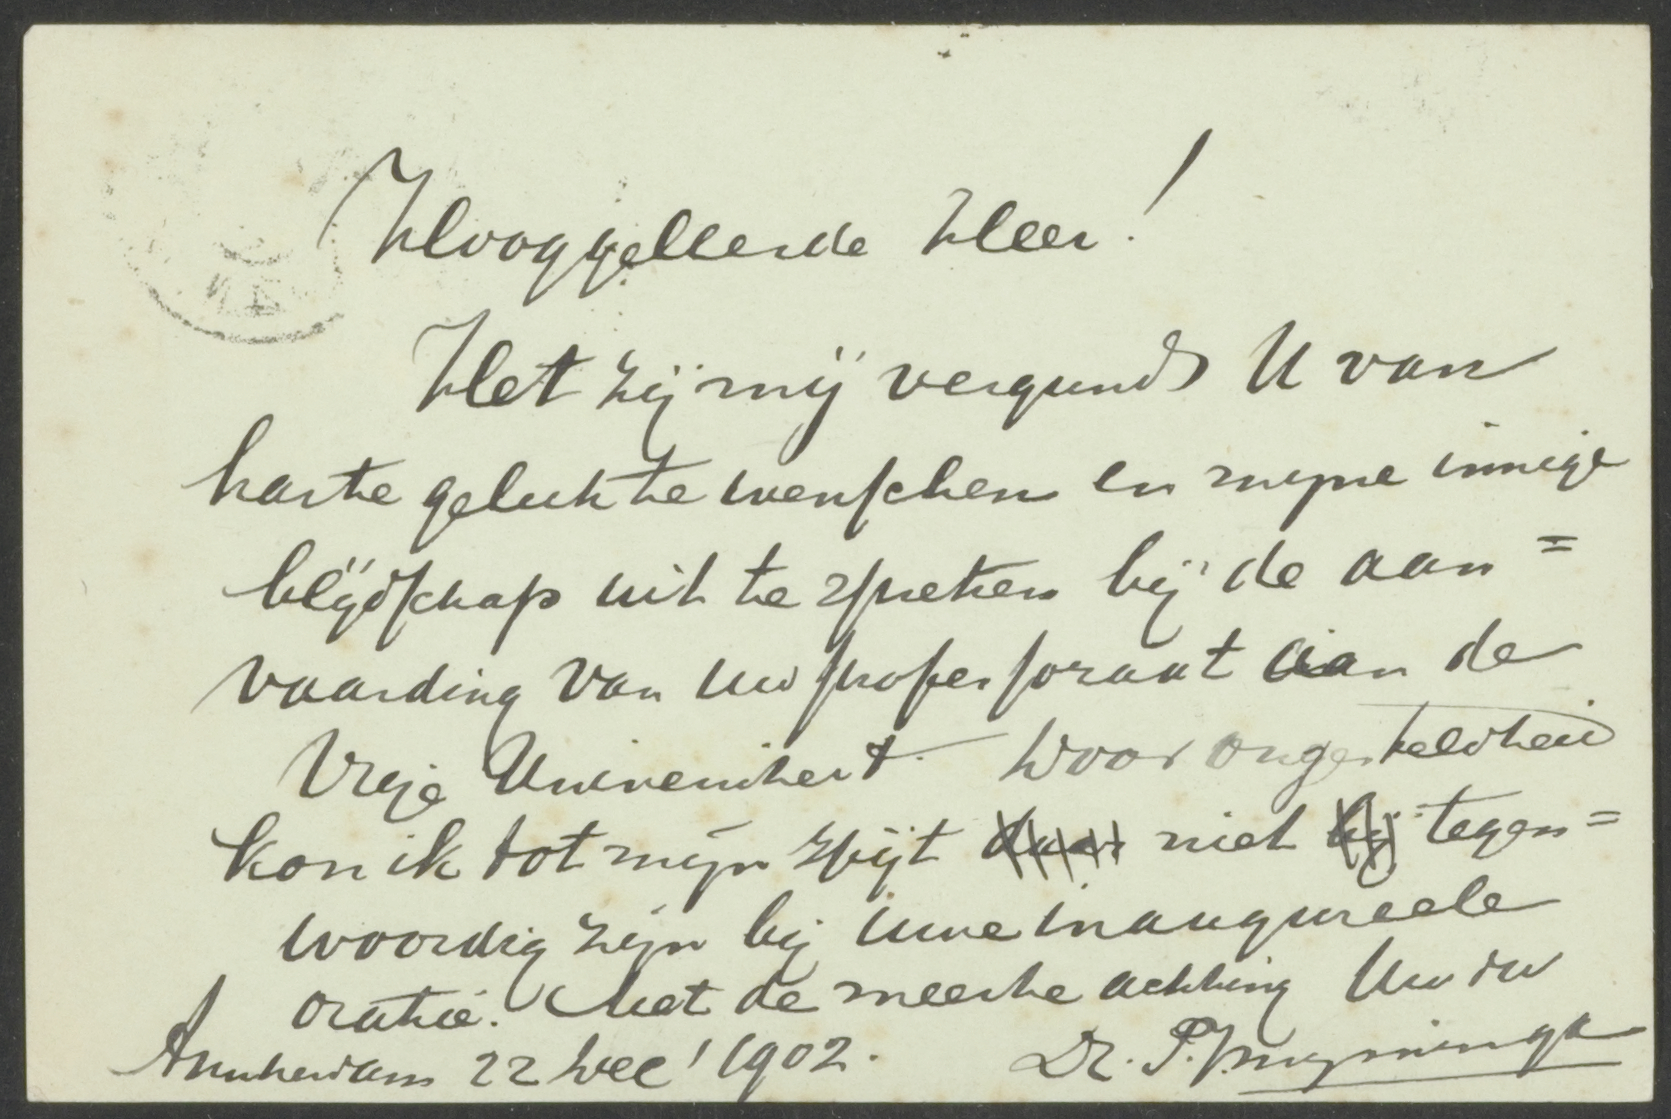 Hooggeleerde Heer!
Het zij mij vergund U van
harte geluk te wenschen en mijne innige
blijdschap uit te spreken bij de aan=
vaarding van uw professoraat aan de
Vrije Universiteit. Door ongesteldheid
kon ik tot mijn spijt niet tegen=
woordig zijn bij uwe inaugureele
oratie. Met de meeste achting Uw dw
Amsterdam 22 Dec! 1902. Dr. P.